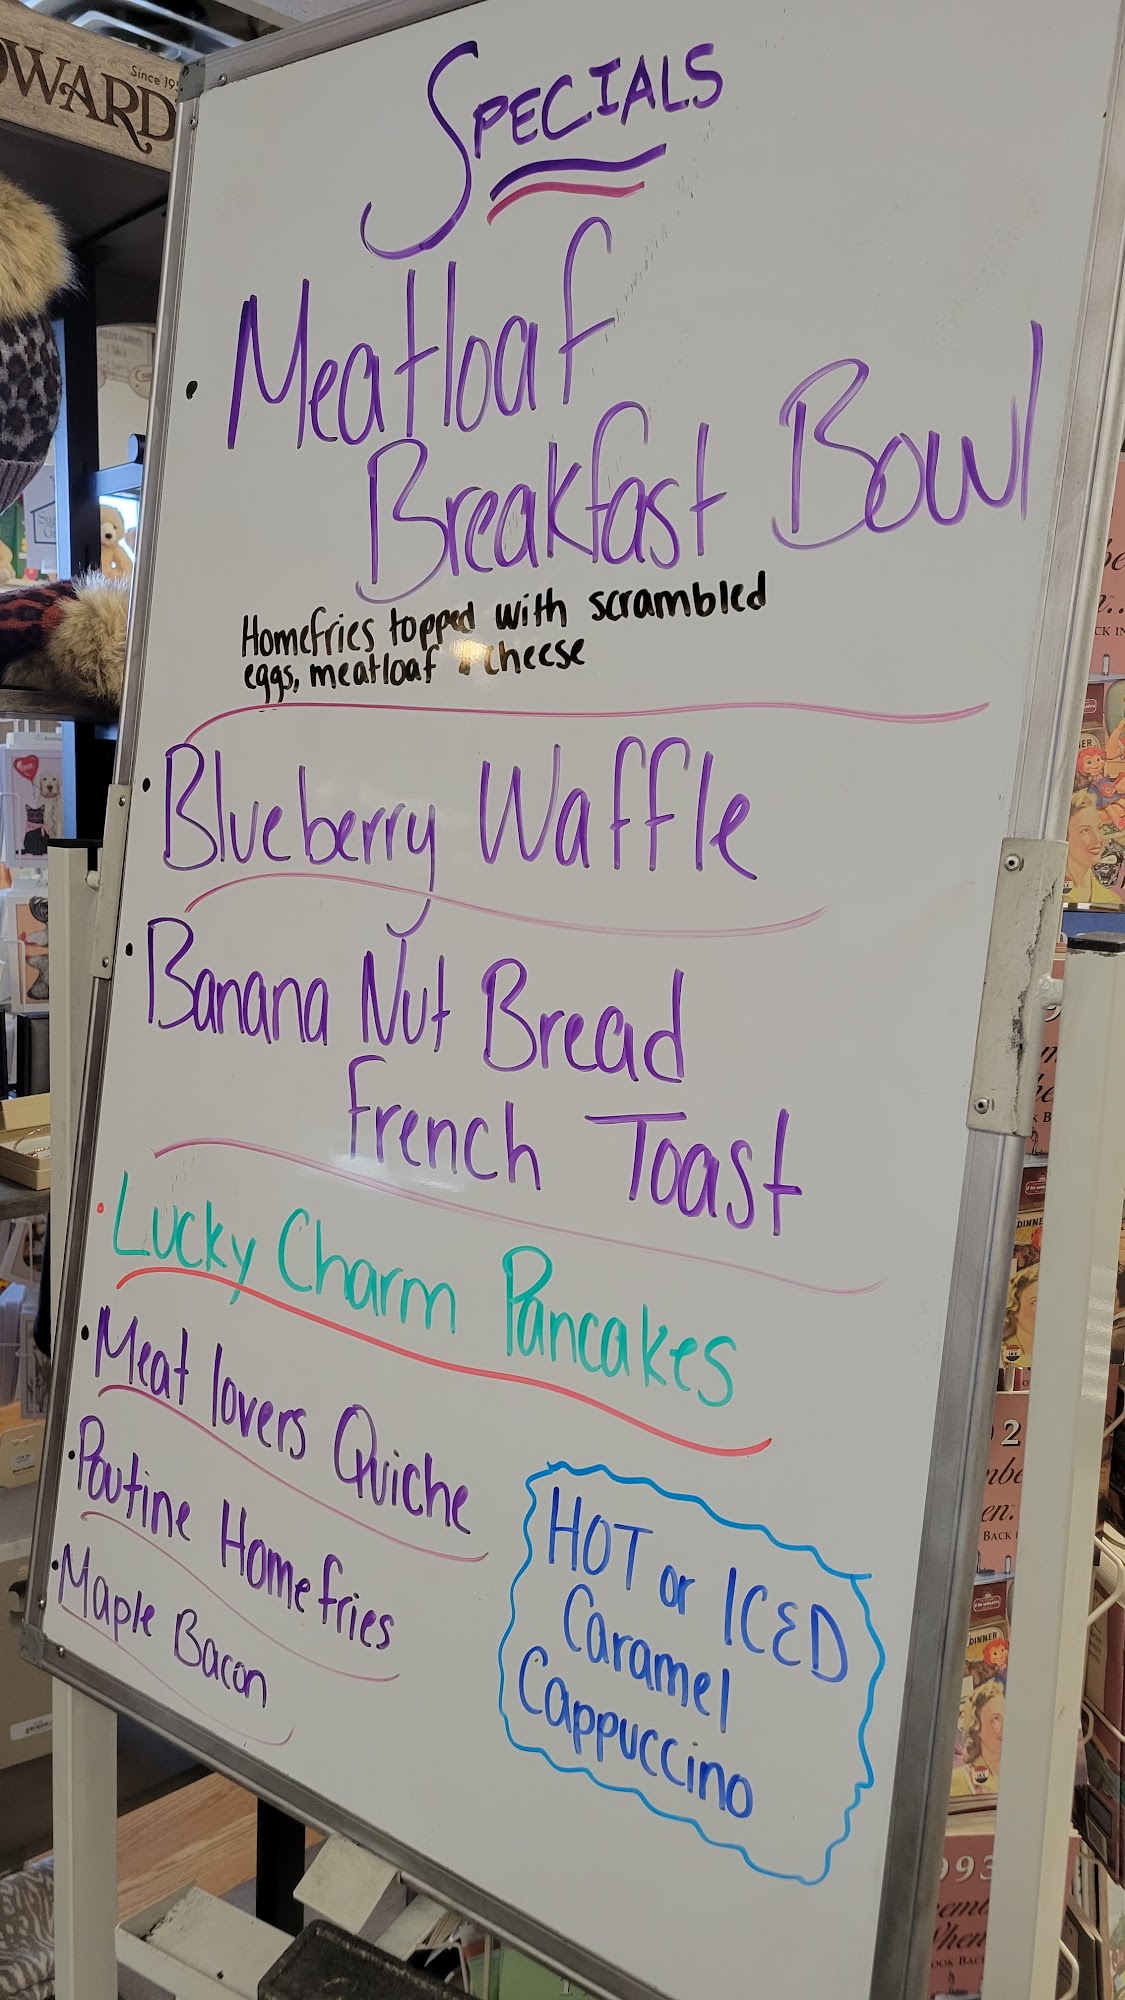 SPECIALS
• Meatloaf
Breakfast Bowl
Homefries topped with scrambled
eggs, meatloaf & cheese
• Blueberry Waffle
• Banana Nut Bread
French Toast
• Lucky Charm Pancakes
• Meat lovers Quiche
• Poutine Homefries
• Maple Bacon
HOT or ICED
Caramel
Cappuccino
WARD
Since 195
DINNER
DINNER
993